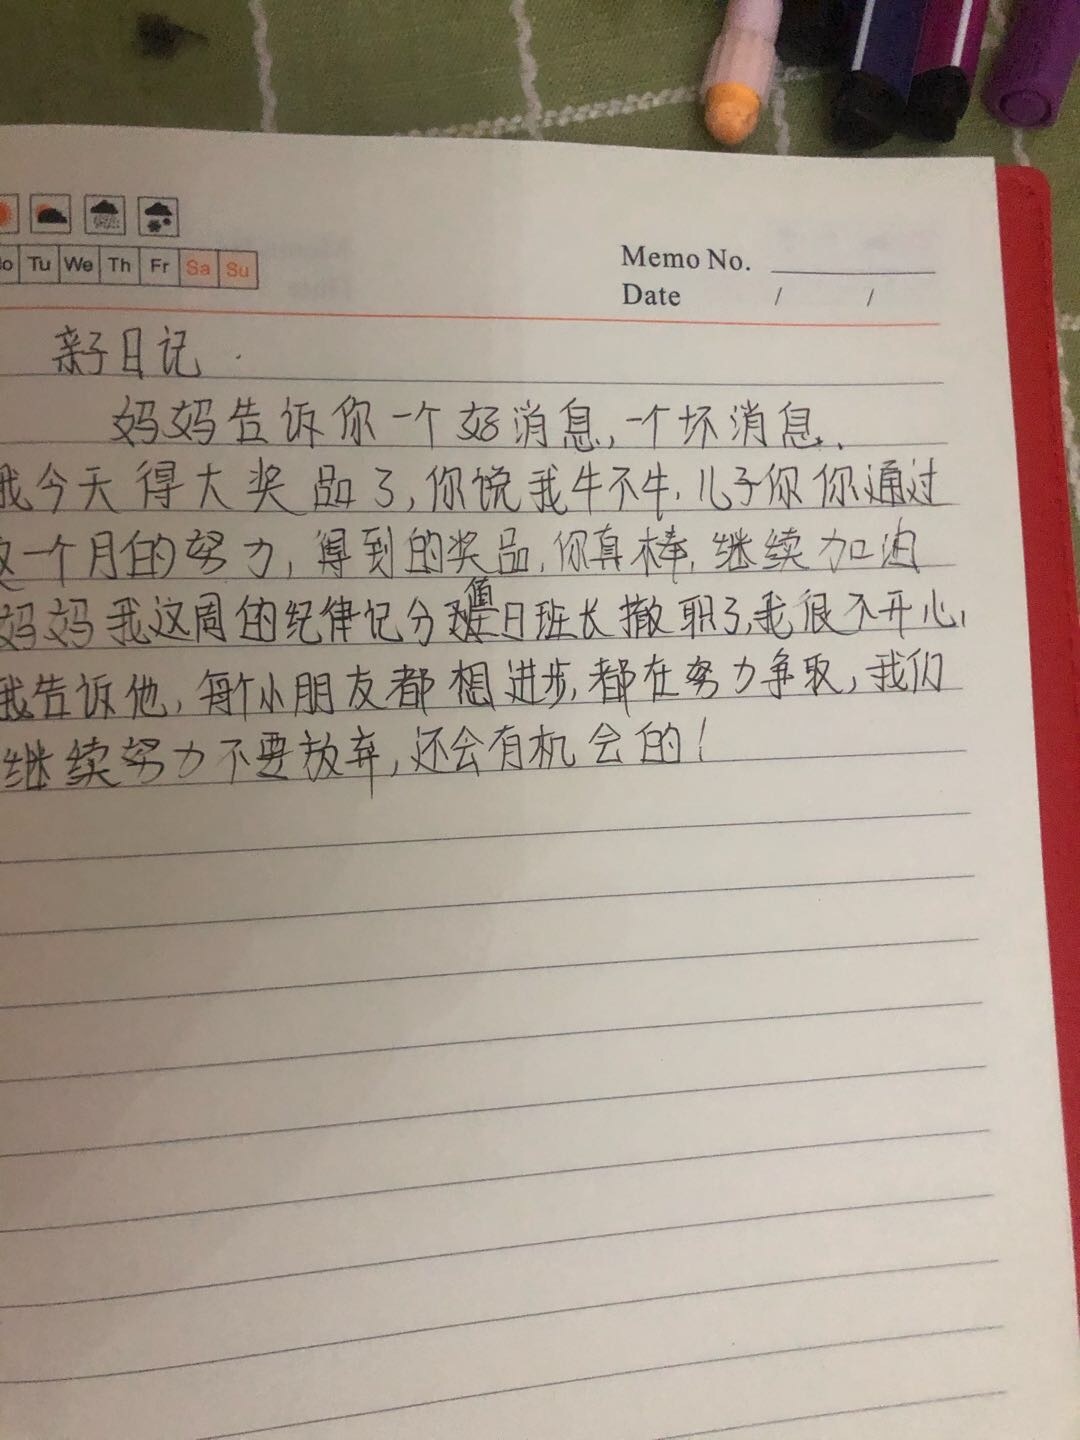 Tu We Th Fr Sa Su
Memo No.
Date / /
亲子日记
妈妈告诉你一个好消息,一个坏消息.
我今天得大奖品了,你说我牛不牛.儿子你你通过
这一个月的努力,得到的奖品,你真棒.继续加油
妈妈我这周的纪律记分 值日班长撤职了,我很不开心,
我告诉他,每个小朋友都想进步,都在努力争取,我们
继续努力不要放弃,还会有机会的!